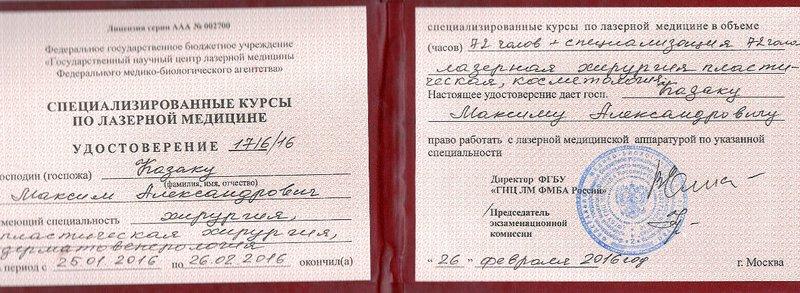 Лицензия серии ААА № 002700
Федеральное государственное бюджетное учреждение
«Государственный научный центр лазерной медицины
Федерального медико-биологического агентства»
СПЕЦИАЛИЗИРОВАННЫЕ КУРСЫ
ПО ЛАЗЕРНОЙ МЕДИЦИНЕ
УДОСТОВЕРЕНИЕ 1716/16
осподин (госпожа) Казаку
(фамилия, имя, отчество)
Максим Александрович
меющий специальность хирургия,
пластическая хирургия,
дерматовенерология
а период с 25.01 2016 по 26.02 2016 окончил(а)
специализированные курсы по лазерной медицине в объеме
(часов) 72 часов + специализация 72 часа
лазерная хирургия, пласти-
ческая, косметология
Настоящее удостоверение дает госп. Казаку
Максиму Александровичу
право работать с лазерной медицинской аппаратурой по указанной
специальности
Директор ФГБУ
«ГНЦ ЛМ ФМБА России»
Председатель
экзаменационной
комиссии
" 26 " февраля 2016 год г. Москва